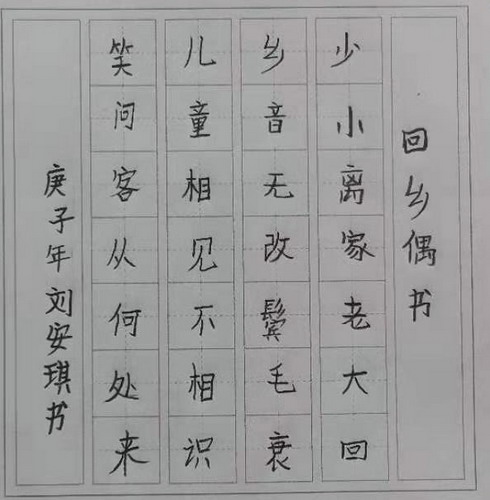 回乡偶书
少小离家老大回
乡音无改鬓毛衰
儿童相见不相识
笑问客从何处来
庚子年刘安琪书